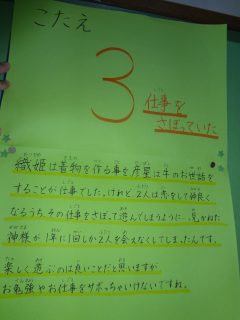 こたえ
3
仕事を
さぼっていた
織姫は着物を作る事を彦星は牛のお世話を
することが仕事でした。けれど2人は恋をして仲良く
なるうち、その仕事をさぼって遊んでしまうように…見かねた
神様が1年に1回しか2人を会えなくしてしまったんです。
楽しく遊ぶのは良いことだと思いますが
お勉強やお仕事をサボっちゃいけないですね。